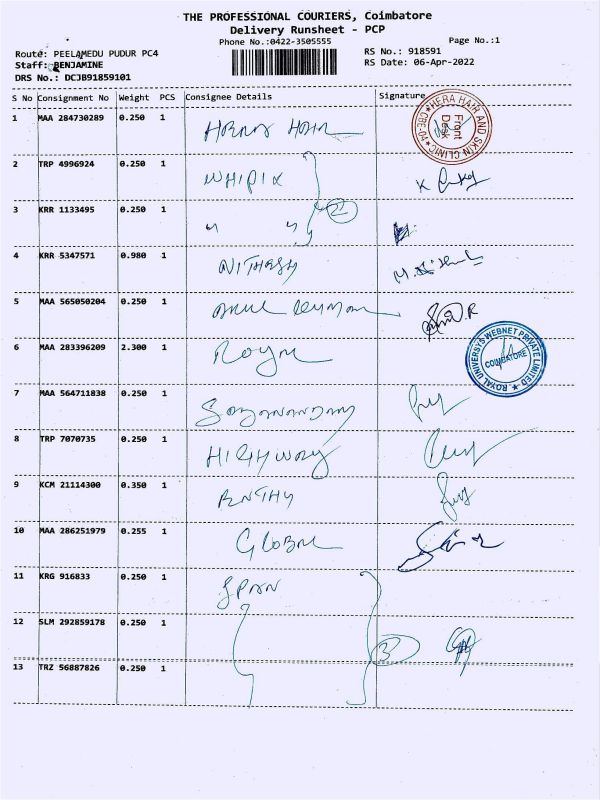 THE PROFESSIONAL COURIERS, Coimbatore
Delivery Runsheet - PCP
Phone No.:0422-3505555
Page No.:1
Route: PEELAMEDU PUDUR PC4
RS No.: 918591
Staff: BENJAMINE
RS Date: 06-Apr-2022
DRS No.: DCJB91859101
S No Consignment No Weight PCS Consignee Details Signature
HERA HAIR AND SKIN CLINIC CBE-04 Front Desk
1 MAA 284730289 0.250 1
2 TRP 4996924 0.250 1 WHIPIX
3 KRR 1133495 0.250 1 " " 2
4 KRR 5347571 0.980 1 NITHESH
5 MAA 565050204 0.250 1
6 MAA 283396209 2.300 1 Royal
ROYAL UNIVERSTS WEBNET PRIVATE LIMITED COIMBATORE
7 MAA 564711838 0.250 1
8 TRP 7070735 0.250 1 HIGHWAY
9 KCM 21114300 0.350 1
10 MAA 286251979 0.255 1 GLOBAL
11 KRG 916833 0.250 1 SPAN
12 SLM 292859178 0.250 1 3
13 TRZ 56887826 0.250 1